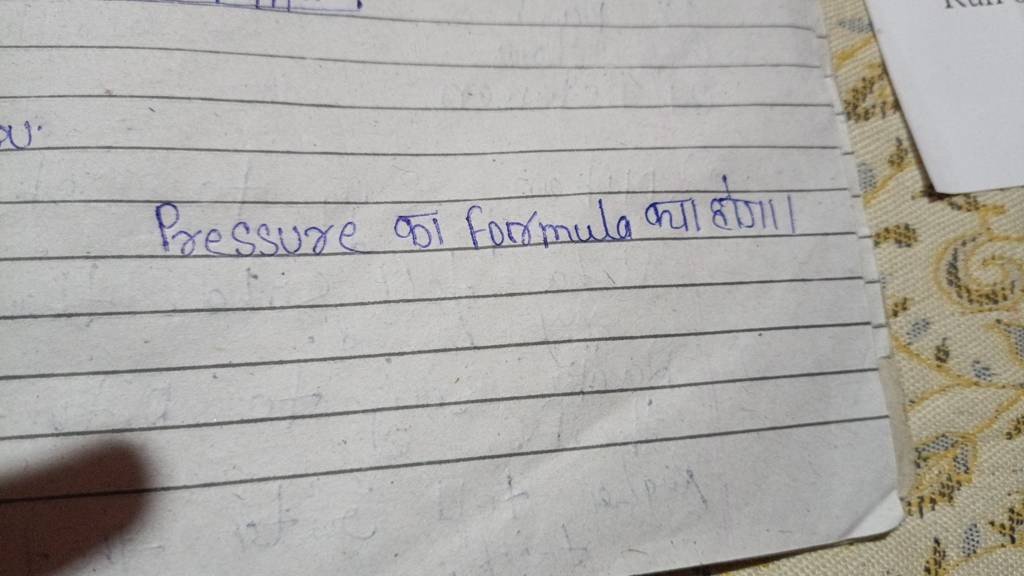 Pressure का formula क्या होगा।